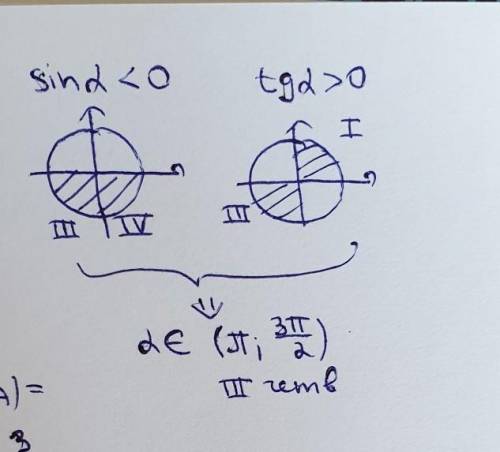 sinα < 0
tgα > 0
I
III
III IV
⇓
α ∈ (π; 3π/2)
III четв
)=
3